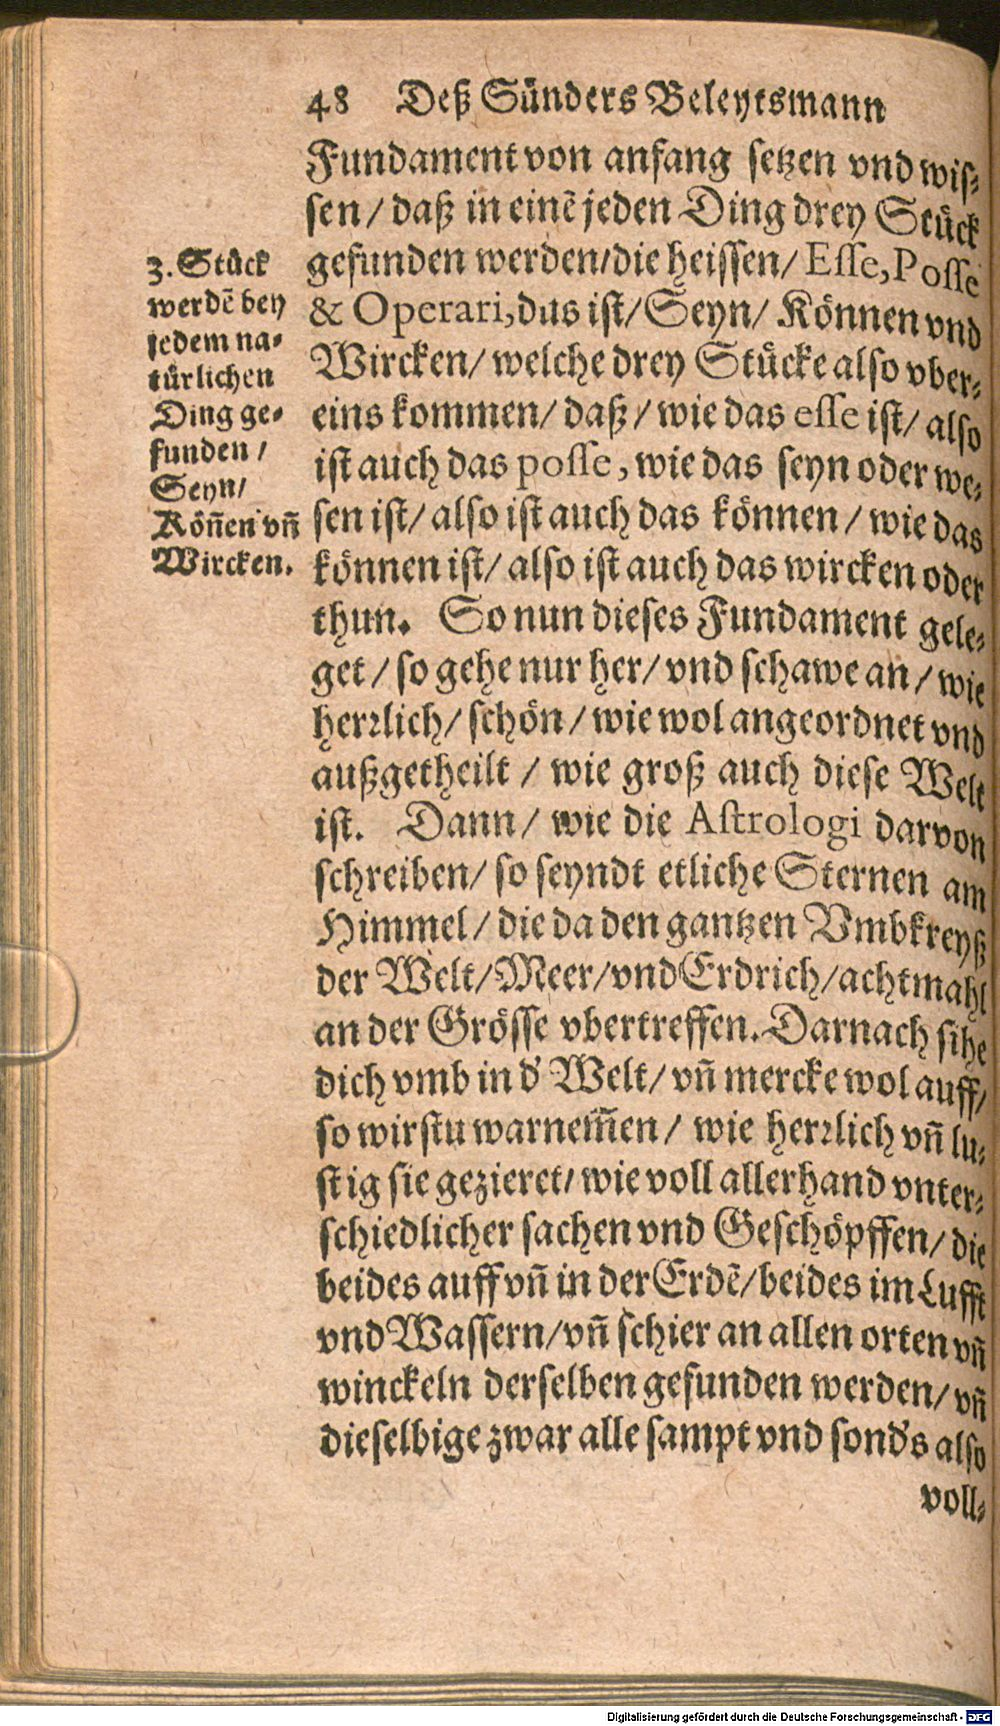 48 Deß Sünders Beleytsmann
Fundament von anfang setzen vnd wis⸗
sen / daß in einē jeden Ding drey Stück
gefunden werden / die heissen / Esse, Posse
& Operari, das ist / Seyn / Können vnd
Wircken / welche drey Stücke also vber⸗
eins kommen / daß / wie das esse ist / also
ist auch das posse, wie das seyn oder we⸗
sen ist / also ist auch das können / wie das
können ist / also ist auch das wircken oder
thun. So nun dieses Fundament gele⸗
get / so gehe nur her / vnd schawe an / wie
herrlich / schön / wie wol angeordnet vnd
außgetheilt / wie groß auch diese Welt
ist. Dann / wie die Astrologi darvon
schreiben / so seyndt etliche Sternen am
Himmel / die da den gantzen Vmbkreyß
der Welt / Meer / vnd Erdrich / achtmahl
an der Grösse vbertreffen. Darnach sihe
dich vmb in d' Welt / vñ mercke wol auff /
so wirstu warnem̃en / wie herrlich vñ lu⸗
stig sie gezieret / wie voll allerhand vnter⸗
schiedlicher sachen vnd Geschöpffen / die
beides auff vñ in der Erdē / beides im Lufft
vnd Wassern / vñ schier an allen orten vñ
winckeln derselben gefunden werden / vñ
dieselbige zwar alle sampt vnd sond's also
voll⸗
3. Stück
werdē bey
jedem na⸗
türlichen
Ding ge⸗
funden /
Seyn /
Köñen vñ
Wircken.
Digitalisierung gefördert durch die Deutsche Forschungsgemeinschaft - DFG